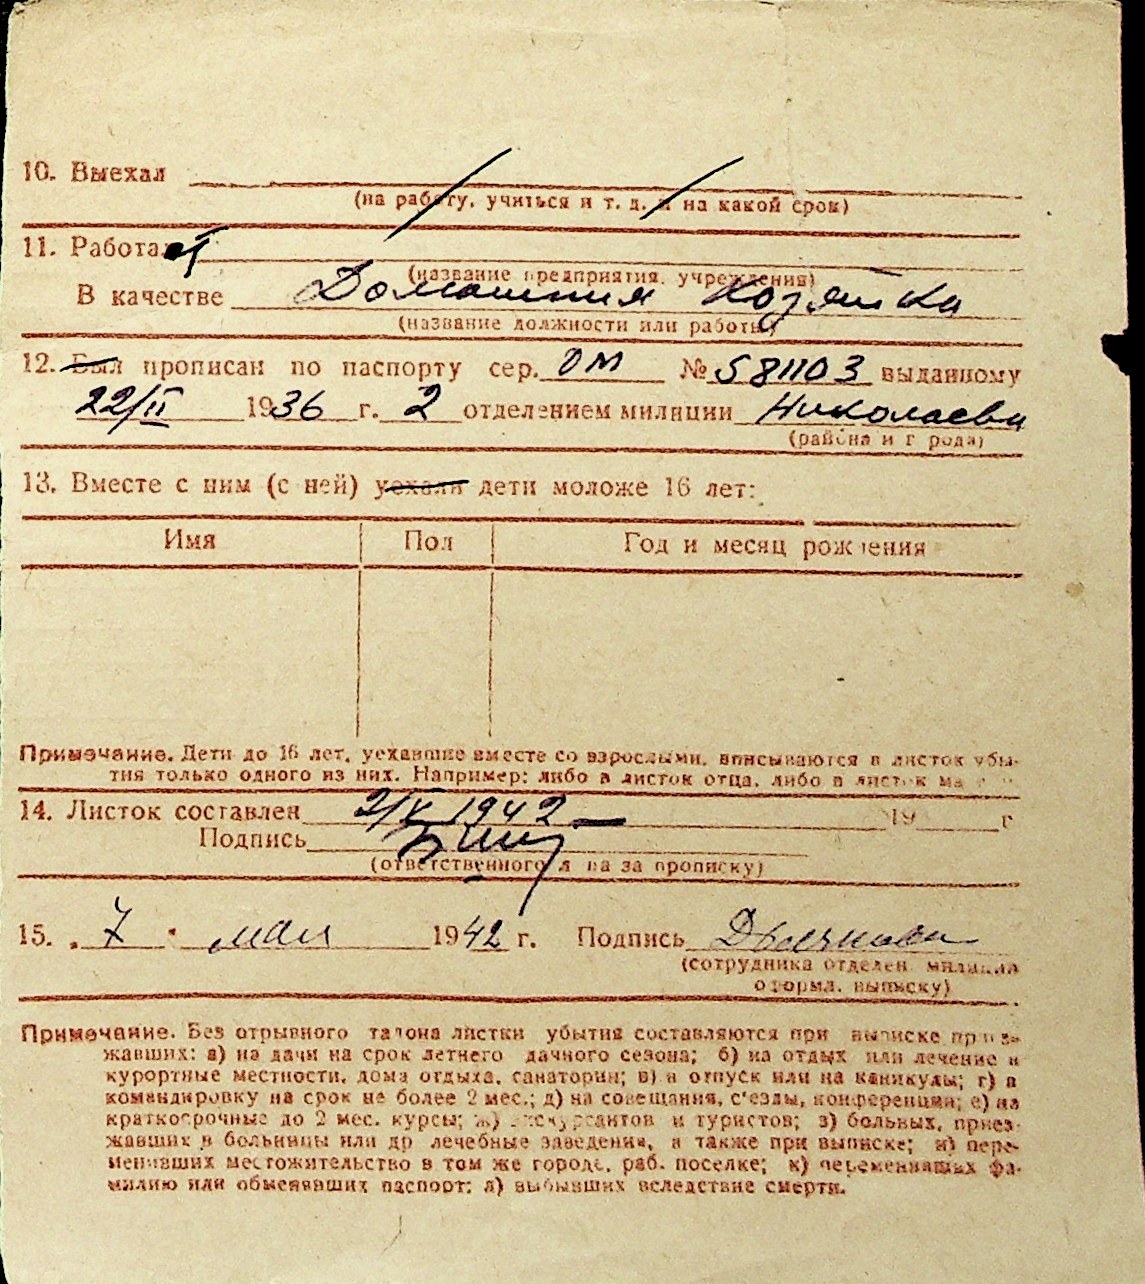 10. Выехал
(на работу, учиться и т. д. и на какой срок)
11. Работает
(название предприятия, учреждения)
В качестве Домашняя Хозяйка
(название должности или работы)
12. Был прописан по паспорту сер. ОМ № 581103 выданному
22/II 1936 г. 2 отделением милиции Николаева
(района и города)
13. Вместе с ним (с ней) уехали дети моложе 16 лет:
Имя Пол Год и месяц рождения
Примечание. Дети до 16 лет, уехавшие вместе со взрослыми, вписываются в листок убы-
тия только одного из них. Например: либо в листок отца, либо в листок
14. Листок составлен 2/V 1942 19 г
Подпись
(ответственного л на за прописку)
15. „ 7 " мая 1942 г. Подпись
(сотрудника отделен. милиции
оформл. выписку)
Примечание. Без отрывного талона листки убытия составляются при выписке приез-
жавших: а) на дачи на срок летнего дачного сезона; б) на отдых или лечение в
курортные местности, дома отдыха, санатории; в) в отпуск или на каникулы; г) в
командировку на срок не более 2 мес.; д) на совещания, с'езды, конференции; е) на
краткосрочные до 2 мес. курсы; ж) экскурсантов и туристов; з) больных, приез-
жавших в больницы или др лечебные заведения, а также при выписке; и) пере-
менивших местожительство в том же городе, раб. поселке; к) переменивших фа-
милию или обменявших паспорт; л) выбывших вследствие смерти.